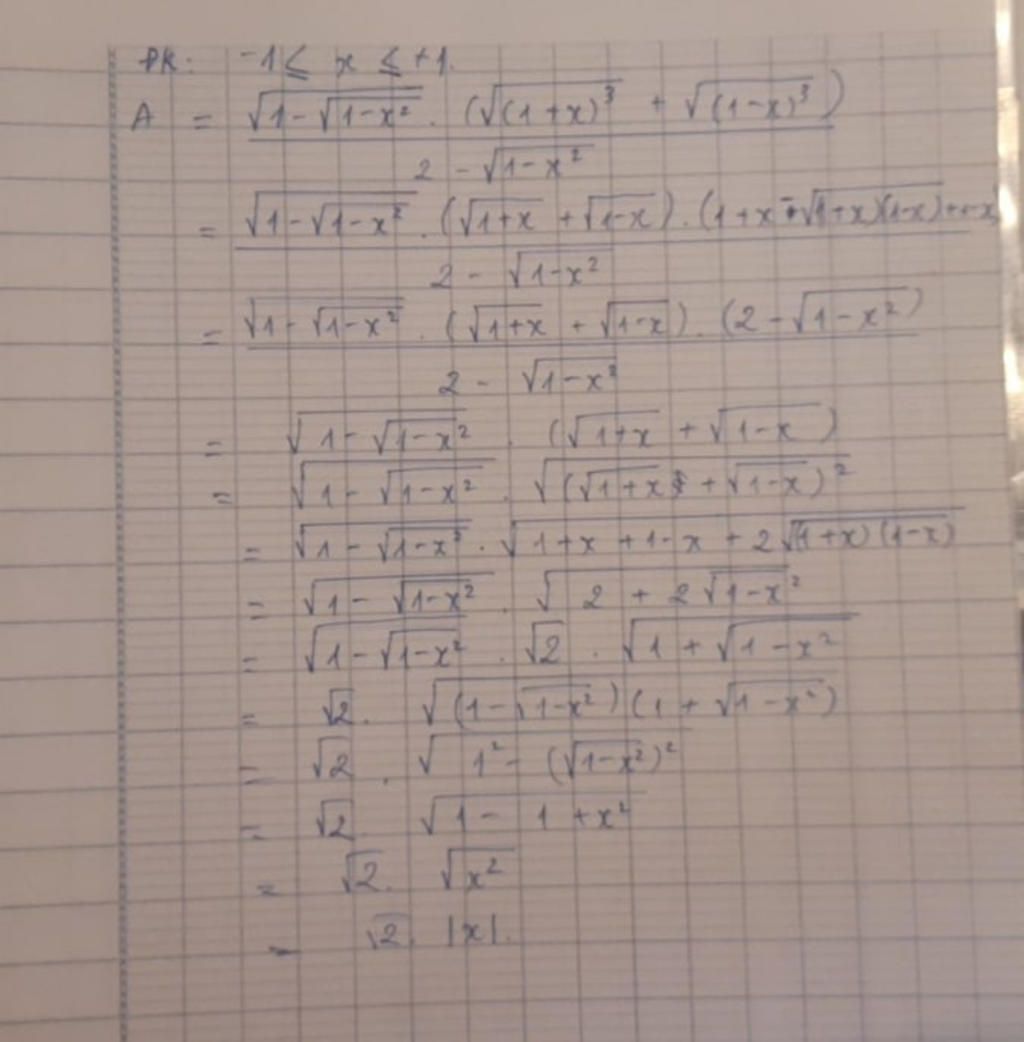 ĐK: -1 ≤ x ≤ +1.
A = √(1-√(1-x²)) . (√((1+x)³) + √((1-x)³)) / (2 - √(1-x²))
= √(1-√(1-x²)) . (√(1+x) + √(1-x)) . (1+x-√((1+x)(1-x))+1-x) / (2 - √(1-x²))
= √(1-√(1-x²)) . (√(1+x) + √(1-x)) . (2-√(1-x²)) / (2 - √(1-x²))
= √(1-√(1-x²)) . (√(1+x) + √(1-x))
= √(1-√(1-x²)) . √((√(1+x) + √(1-x))²)
= √(1-√(1-x²)) . √(1+x+1-x+2√((1+x)(1-x)))
= √(1-√(1-x²)) . √(2+2√(1-x²))
= √(1-√(1-x²)) . √2 . √(1+√(1-x²))
= √2 . √((1-√(1-x²))(1+√(1-x²)))
= √2 . √(1²-(√(1-x²))²)
= √2 √(1-1+x²)
= √2 . √(x²)
= √2 . |x|.